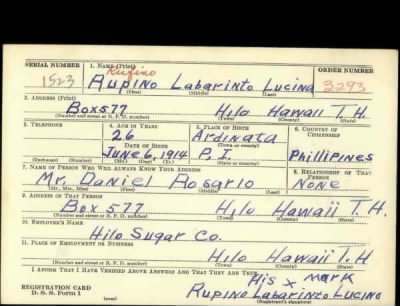 SERIAL NUMBER 1. NAME (Print) ORDER NUMBER
Rufino
1523 Rupino Labarinto Lucino 3293
(First) (Middle) (Last)
2. ADDRESS (Print)
Box 577 Hilo Hawaii T.H.
(Number and street or R. F. D. number) (Town) (County) (State)
3. TELEPHONE 4. AGE IN YEARS 5. PLACE OF BIRTH 6. COUNTRY OF CITIZENSHIP
26 Ardinata
DATE OF BIRTH (Town or county)
June 6, 1914 P.I. Phillipines
(Exchange) (Number) (Mo.) (Day) (Yr.) (State or country)
7. NAME OF PERSON WHO WILL ALWAYS KNOW YOUR ADDRESS 8. RELATIONSHIP OF THAT PERSON
Mr. Daniel Rosario None
(Mr., Mrs., Miss) (First) (Middle) (Last)
9. ADDRESS OF THAT PERSON
Box 577 Hilo Hawaii T.H.
(Number and street or R. F. D. number) (Town) (County) (State)
10. EMPLOYER'S NAME
Hilo Sugar Co.
11. PLACE OF EMPLOYMENT OR BUSINESS
Hilo Hawaii T.H
(Number and street or R. F. D. number) (Town) (County) (State)
I AFFIRM THAT I HAVE VERIFIED ABOVE ANSWERS AND THAT THEY ARE TRUE.
His x mark
REGISTRATION CARD
D. S. S. Form 1 Rupino Labarinto Lucino
(over) (Registrant's signature)